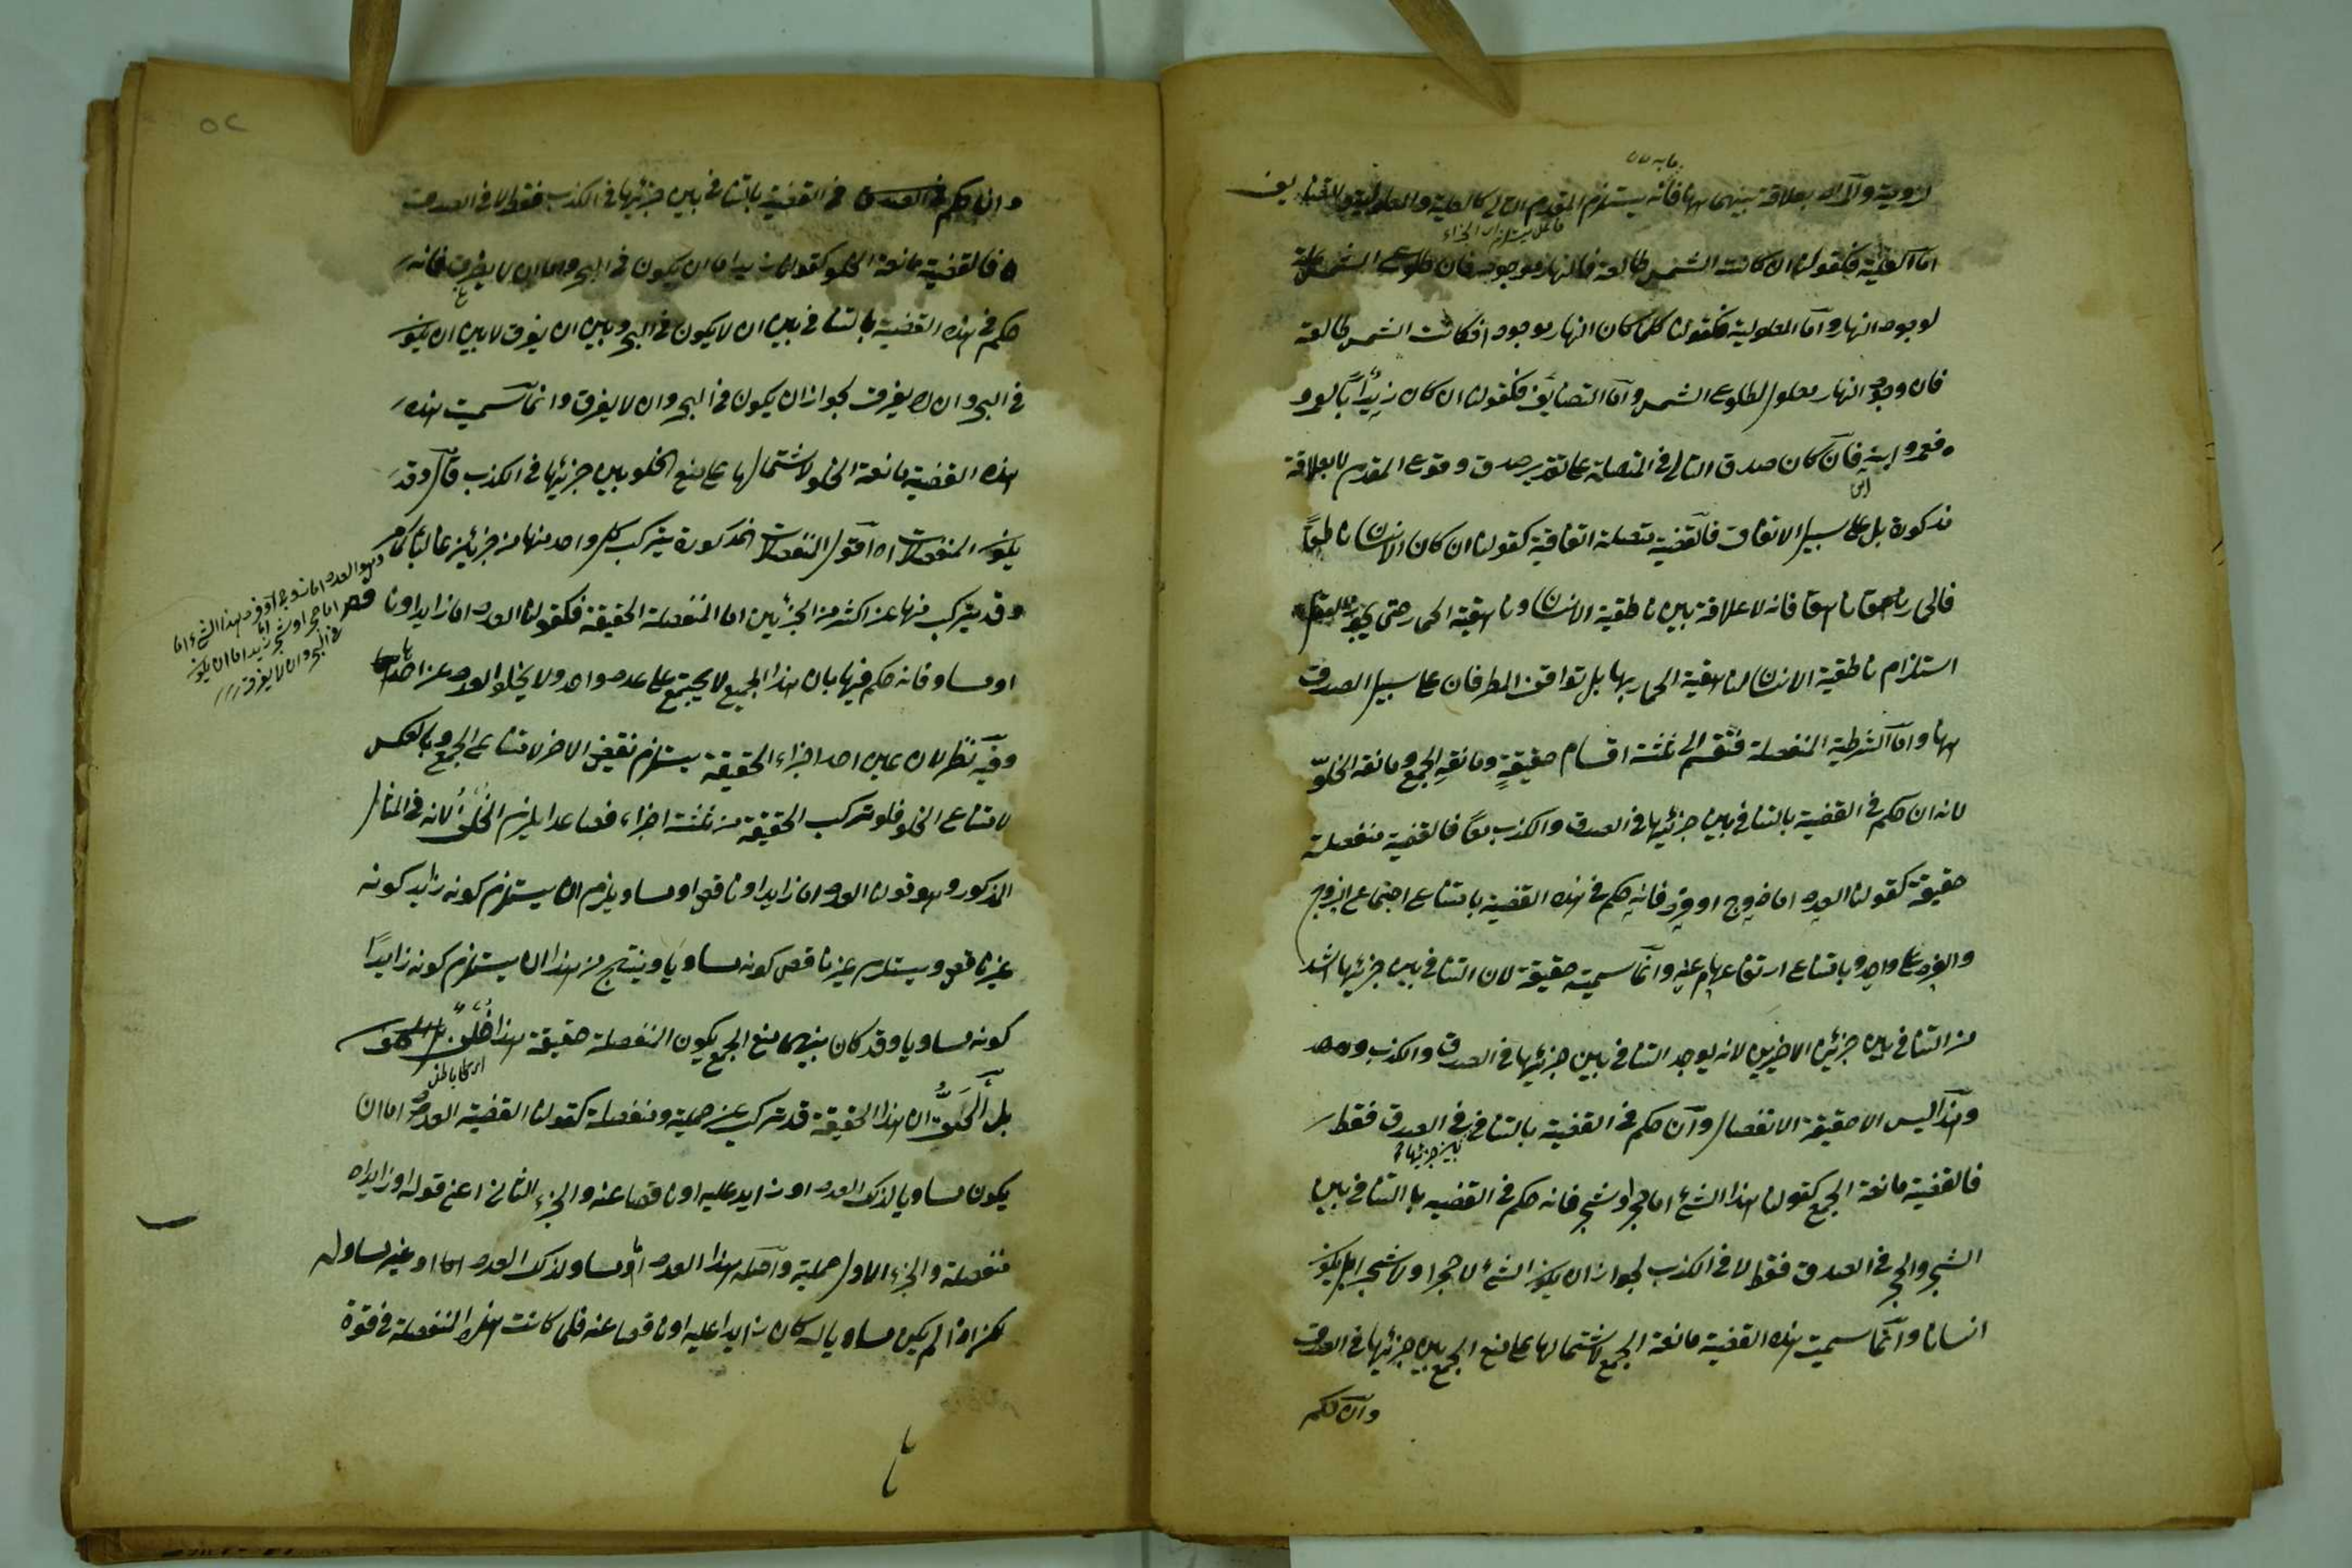 لزومية والالا بعلاقة بينهما فانه يستلزم المقدم التالى كالعلية والمعلولية والتضايف
اما العلية فكقولنا ان كانت الشمس طالعة فالنهار موجود فان طلوع الشمس علة
لوجود النهار واما المعلولية فكقولنا كلما كان النهار موجودا فكانت الشمس طالعة
فان وجود النهار معلول لطلوع الشمس واما التضايف فكقولنا ان كان زيد ابا لعمرو
فعمرو ابنه فان كان صدق التالى فى المتصلة على تقدير صدق وقوع المقدم لا بعلاقة
مذكورة بل على سبيل الاتفاق فالقضية متصلة اتفاقية كقولنا ان كان الانسان ناطقا
فالحمار ناهقا فانه لا علاقة بين ناطقية الانسان وناهقية الحمار حتى يجوز العقل
استلزام ناطقية الانسان لناهقية الحمار بها بل توافق الطرفان على سبيل الصدق
ههنا واما الشرطية المنفصلة فتنقسم الى ثلثة اقسام حقيقية ومانعة الجمع ومانعة الخلو
لانه ان حكم فى القضية بالتنافى بين جزئيها فى الصدق والكذب معا فالقضية منفصلة
حقيقية كقولنا العدد اما زوج او فرد فانه حكم فى هذه القضية بامتناع اجتماع الزوج
والفرد على واحد وبامتناع ارتفاعهما عنه وانما سميت حقيقة لان التنافى بين جزئيها اشد
من التنافى بين جزئى الاخريين لانه يوجد التنافى بين جزئيها فى الصدق والكذب
وهذا ليس الا حقيقة الانفصال وان حكم فى القضية بالتنافى بين جزئيها فى الصدق فقط
فالقضية مانعة الجمع كقولنا هذا الشئ اما حجر او شجر فانه حكم فى القضية بالتنافى بين
الشجر والحجر فى الصدق فقط لا فى الكذب لجواز ان يكون الشئ لا حجرا ولا شجرا بل يكون
انسانا وانما سميت هذه القضية مانعة الجمع لاشتمالها على منع الجمع بين جزئيها فى الصدق
وان حكم
٥٢
وان حكم فى القضية بالتنافى بين جزئيها فى الكذب فقط لا فى الصدق
فالقضية مانعة الخلو كقولنا زيد اما ان يكون فى البحر واما ان لا يغرق فانه
حكم فى هذه القضية بالتنافى بين ان لا يكون فى البحر وبين ان يغرق لا بين ان يكون
فى البحر وان لا يغرق لجواز ان يكون فى البحر وان لا يغرق وانما سميت هذه
هذه القضية مانعة الخلو لاشتمالها على منع الخلو بين جزئيها فى الكذب قال وقد
يكون المنفصلات اه اقول المنفصلات المذكورة يتركب كل واحد منها من جزئين غالبا كما مر
وقد يتركب منها عن اكثر من الجزئين اما المنفصلة الحقيقة فكقولنا العدد اما زايد او ناقص
او مساو فانه حكم فيها بان هذا الجميع لا يجتمع على عدد واحد ولا يخلو العدد عن احدها
وفيه نظر لان عين احد اجزاء الحقيقة يستلزم نقيض الاخر لامتناع الجمع وبالعكس
لامتناع الخلو فلو تركب الحقيقة من ثلثة اجزاء فصاعدا يلزم الخلف لانه فى المثال
المذكور وهو قولنا العدد اما زايد او ناقص او مساو يلزم ان يستلزم كونه زايد كونه
غير ناقص ويستلزم غير ناقص كونه مساويا وينتج من هذا ان يستلزم كونه زايدا
كونه مساويا وقد كان بينهما منع الجمع يكون المنفصلة حقيقة هذا خلف
اى كلام باطل
بل الحق ان هذا الحقيقة قد تركب عن حملية ومنفصلة كقولنا القضية العدد اما ان
يكون مساويا لذلك العدد او زايد عليه او ناقصا عنه والجزء الثانى اعنى قوله او زايد اه
منفصلة والجزء الاول حملية واصله هذا العدد اما مساو لذلك العدد او غير مساو له
لكن اذا لم يكن مساويا له كان زايدا عليه او ناقصا عنه فلما كانت هذه المنفصلة فى قوة
وهو العدد اما زوج او فرد هذا الشئ اما
اما حجر او شجر زيد اما ان يكون
فى البحر وان لا يغرق